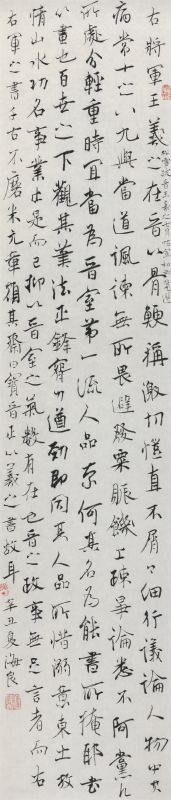 右將軍王羲之在晉以骨鯁稱激切愷直不屑屑細行議論人物中其
病常十之八九與當道諷諫無所畏避發粟賑饑上疏爭論悉不阿黨凡
所處分輕重時宜當為晉室第一流人品奈何其名為能書所掩耶書
心畫也百世之下觀其筆法正鋒腕力遒勁即同其人品所惜溺意東土放
情山水功名事業止是而已抑以晉室之氣數有在也晉之政事無足言者而右
右軍之書千古不磨米元章額其齋曰寶晉正以羲之書故耳 辛丑夏海良